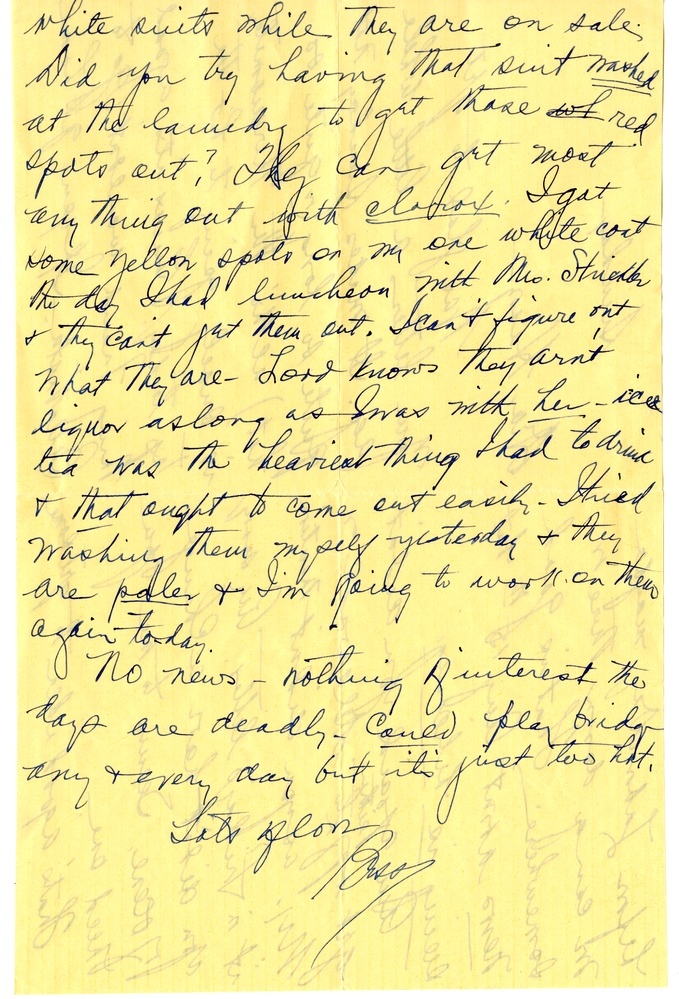 white suits while they are on sale.
Did you try having that suit washed
at the laundry to get those red
spots out? They can get most
any thing out with clorox. I got
some yellow spots on my one white coat
the day I had luncheon with Mrs. Strickler
& they can't get them out. I can't figure out
what they are - Lord knows they arn't
liquor as long as I was with her - iced
tea was the heaviest thing I had to drink
& that ought to come out easily - I tried
washing them myself yesterday & they
are paler & I'm going to work on them
again to-day.
No news - nothing of interest the
days are deadly - could play bridge
any & every day but it's just too hot.
Lots of love
Bess